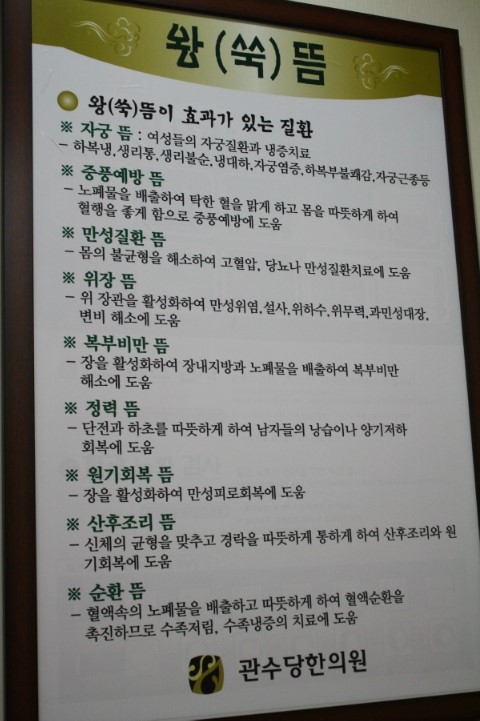 왕(쑥)뜸
왕(쑥)뜸이 효과가 있는 질환
※ 자궁 뜸 : 여성들의 자궁질환과 냉증치료
- 하복냉,생리통,생리불순,냉대하,자궁염증,하복부불쾌감,자궁근종등
※ 중풍예방 뜸
- 노폐물을 배출하여 탁한 혈을 맑게 하고 몸을 따뜻하게 하여
혈행을 좋게 함으로 중풍예방에 도움
※ 만성질환 뜸
- 몸의 불균형을 해소하여 고혈압, 당뇨나 만성질환치료에 도움
※ 위장 뜸
- 위 장관을 활성화하여 만성위염,설사,위하수,위무력,과민성대장,
변비 해소에 도움
※ 복부비만 뜸
- 장을 활성화하여 장내지방과 노폐물을 배출하여 복부비만
해소에 도움
※ 정력 뜸
- 단전과 하초를 따뜻하게 하여 남자들의 낭습이나 양기저하
회복에 도움
※ 원기회복 뜸
- 장을 활성화하여 만성피로회복에 도움
※ 산후조리 뜸
- 신체의 균형을 맞추고 경락을 따뜻하게 통하게 하여 산후조리와 원
기회복에 도움
※ 순환 뜸
- 혈액속의 노폐물을 배출하고 따뜻하게 하여 혈액순환을
촉진하므로 수족저림, 수족냉증의 치료에 도움
관수당한의원